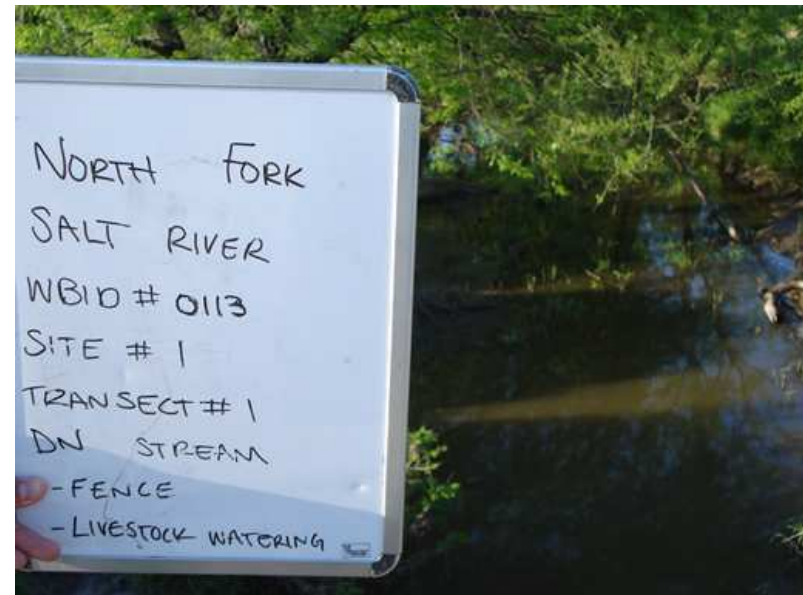 NORTH FORK
SALT RIVER
WBID # 0113
SITE # 1
TRANSECT # 1
DN STREAM
- FENCE
- LIVESTOCK WATERING